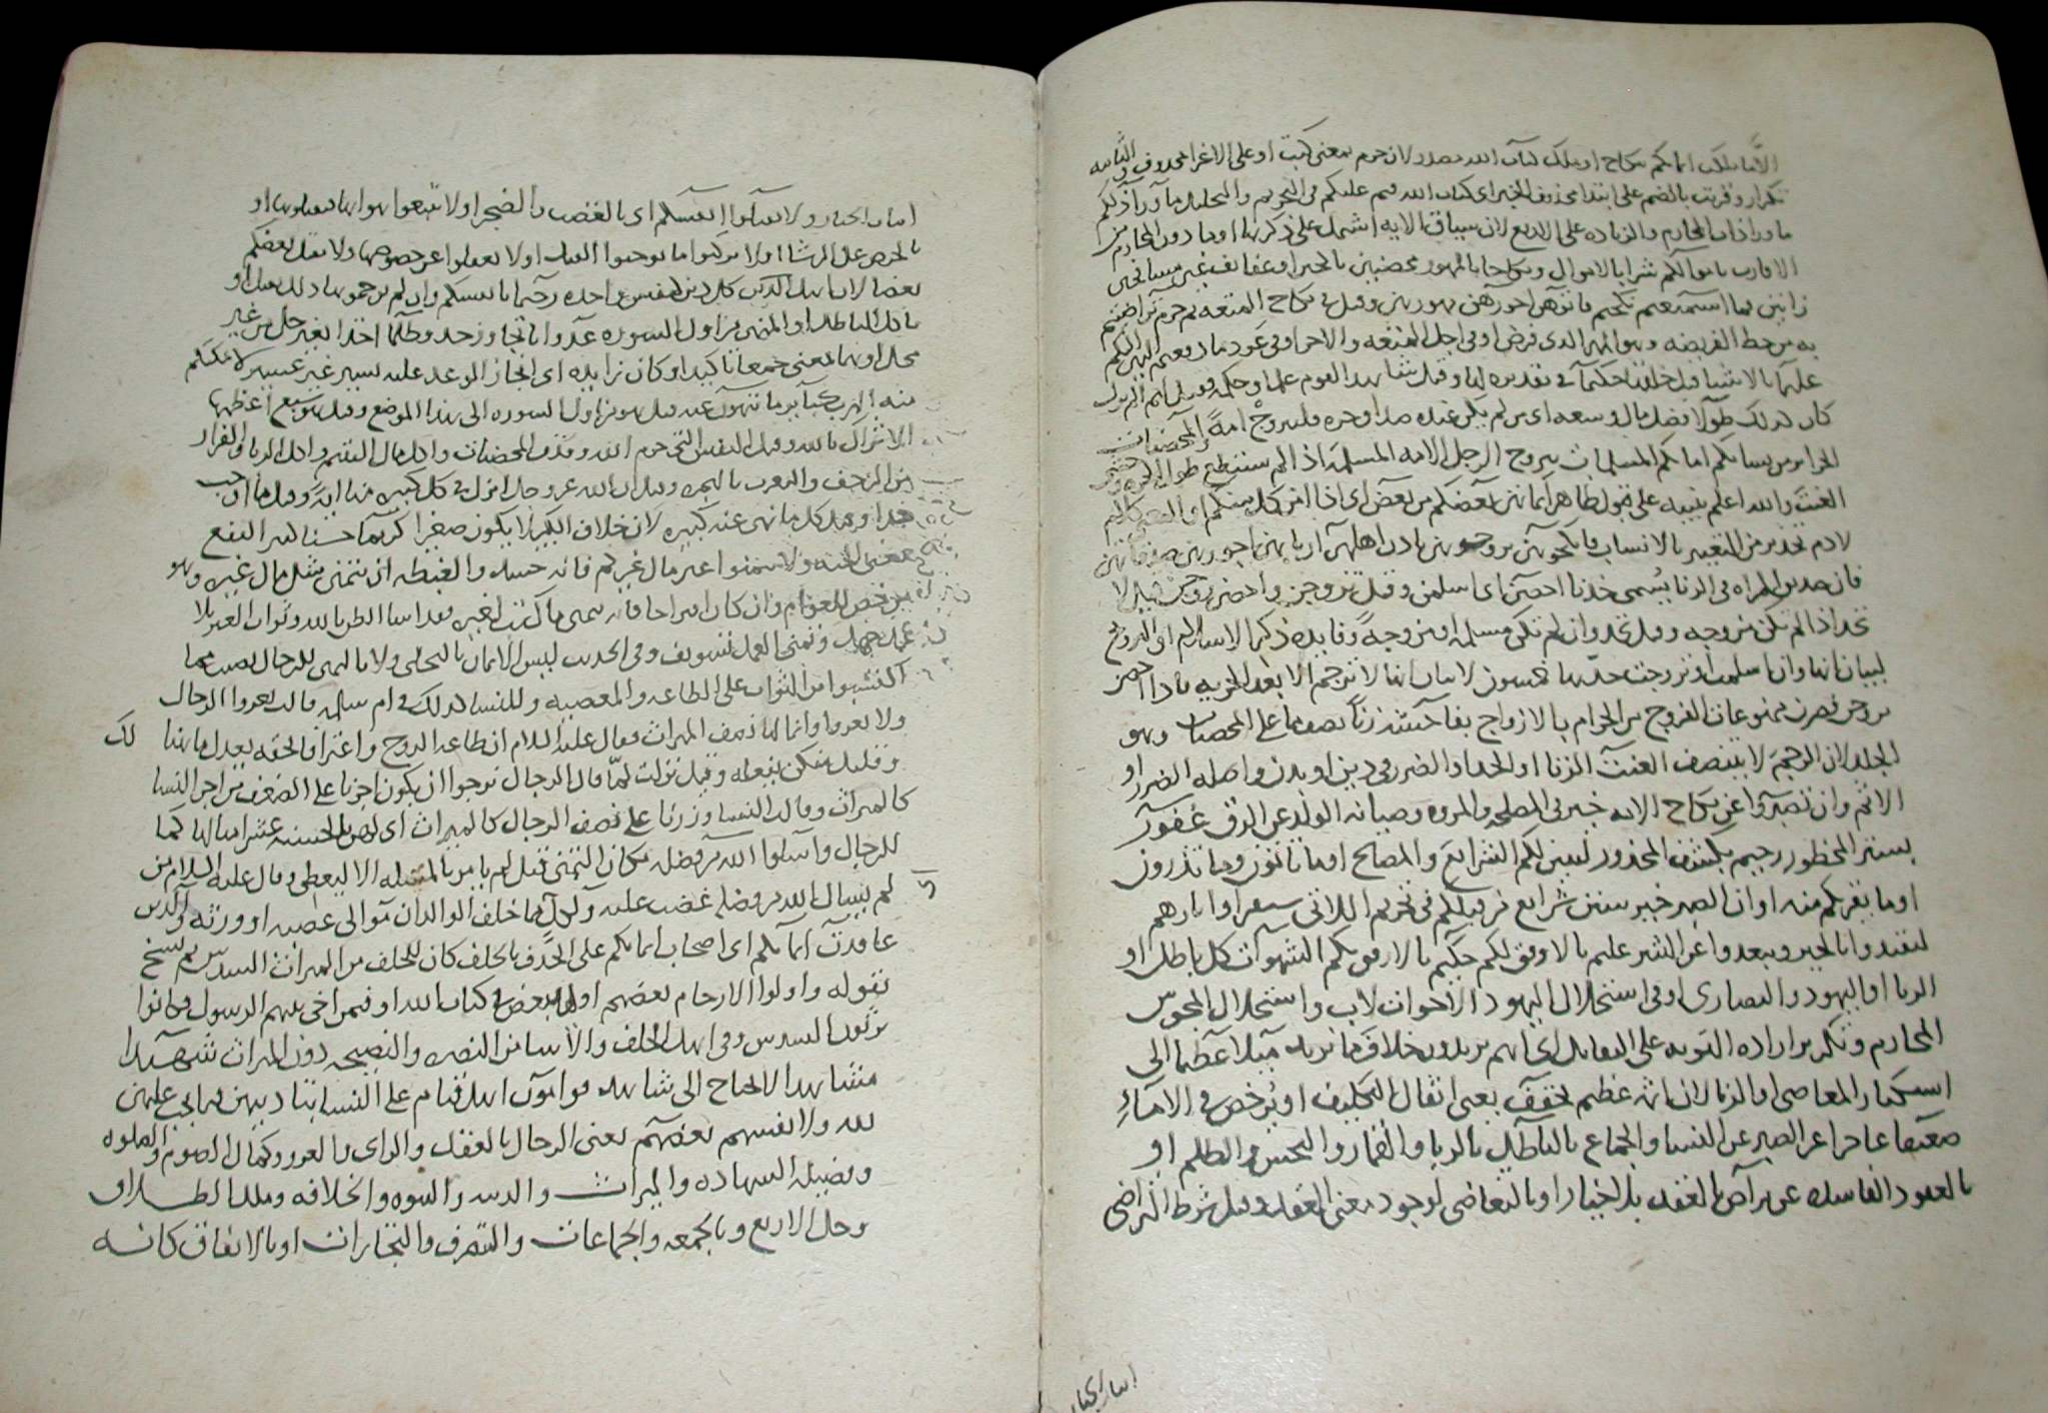 الا ما ملكت ايمانكم بنكاح او ملك كتاب الله مصدر لان حرم بمعنى كتب او على الاغرا محذوف والثانيه
تكرار وقريت بالضم على ابتدا محذوف الخبر اى كتاب الله قسم عليكم فى التحريم والتحليل ما ورآ ذلكم
ما ورا ذات المحارم والزياده على الاربع لان سياق الايه اشتمل على ذكرها او ما دون المحارم من
الاقارب باموالكم شرا بالاموال ونكاحا بالمهور محصنين بالخير او عفايف غير مسافحين
زانين فما استمتعتم نكحتم فاتوهن اجورهن مهورهن وقيل فى نكاح المتعه ثم حرم تراضيتم
به من حط الفريضه وهو المهر الذى فرض او فى اجل المتعه والاجر او فى عود ما دفعتم اليهن اليكم
عليما بالاشيا قبل خلقها حكيما فى تقديره لها وقيل شاهد القوم علما وحكمه فقيل لهم لم يزل
كان كذلك طولا فضل مال وسعه اى من لم يكن عنده صداق حره فليتزوج امة والمحصنات
الحراير من نسايكم امايكم المسلمات يتزوج الرجل الامه المسلمة اذا لم يستطع طول الحره وخشى
العنت والله اعلم تنبيه على قبول ظاهر ايمانهن بعضكم من بعض اى اذا امن كل منكم او الجميع كلهم
لادم تحذير من التعيير بالانساب فانكحوهن تزوجوهن باذن اهلهن اربابهن اجورهن صدقاتهن
فان صديق المراه فى الزنا يسمى خدنا احصن اى اسلمن وقيل تزوجن واحصن زوجن قيل لا
تحد اذا لم تكن مزوجه وقيل تحد وان لم تكن مسلمه او مزوجة وفايده ذكر الاسلام او التزويج
لبيان انها وان اسلمت او تزوجت حدها خمسون لا بيان انها لا ترجم الا بعد الحريه فاذا احصن
تزوجن فصرن ممنوعات الفروج من الحرام بالازواج بفاحشة زنا نصف ما على المحصنات وهو
الجلد لان الرجم لا يتنصف العنت الزنا او الحد او الضرر فى دين او بدن واصله الضرر او
الاثم وان تصبروا عن نكاح الامه خير فى المصلحه والمروه وصيانه الولد عن الرق غفور
يستر المحظور رحيم بكشف المحذور ليبين لكم الشرايع والمصالح او ما تاتون وما تذرون
او ما يقربكم منه او ان الصبر خير سنن شرايع من قبلكم فى تحريم اللاتى سبقن او ابارهم
لتقتدوا بالخير وتبعدوا عن الشر عليم بالاوفق لكم حكيم بالارفق بكم الشهوات كل باطل او
الزنا او اليهود والنصارى او فى استحلال اليهود الاخوات لاب واستحلال المجوس
المحارم وتكرير اراده التوبه على التقابل اى انهم يريدون خلاف ما نريد ميلا عظيما الى
استكبار المعاصى او الزنا لان اثمه عظيم يخفف يعنى اثقال التكليف او يرخص فى الامآء
ضعيفا عاجزا عن الصبر عن النسا والجماع بالباطل بالربا والقمار والبخس والظلم او
بالعقود الفاسده عن تراض العقد بلا خيار او بالتعاطى لوجود معنى العقد وقيل شرط التراضى
اثبات الخيار
اثبات الخيار ولا تقتلوا انفسكم اى بالغضب والضجر او لا تتبعوا هواها فتقتلوها او
بالحرص على الرشا او لا تركبوا ما يوجب القتل او لا تغفلوا عن حظوظها ولا يقتل بعضكم
بعضا لان اهل الدين كلهم كنفس واحده رحيما بانفسكم وان لم ترحموها ذلك القتل او
ياكل الباطل او المنهى من اول السوره عدوانا تجاوز حد وظلما اخذا بغير حل من غير
محل او هما بمعنى جمعا تاكيدا وكان زايده اى انجاز الوعد عليه يسير غير عسير لا مفكم
منه الهرب كباير ما تنهون عنه قيل هو من اول السوره الى هذا الموضع وقيل هو سبع اعظمها
الاشراك بالله وقتل النفس التى حرم الله وقذف المحصنات واكل مال اليتيم واكل الربا والفرار
من الزحف والتعرب بالهجره وقيل ان الله عز وجل انزل فى كل كبيره منها ايه وقيل ما اوجب
حدا وقيل كل ما نهى عنه كبيره لان خلاف الكبير لا يكون صغيرا كريما حسنا كثير النفع
يعنى الجنه ولا تتمنوا عين مال غيركم فانه حسد والغبطه ان تتمنى مثل مال غيره وهو
مرخص للعوام وان كان امرا حافا به تمنى ما كتب لغيره فقد اسا الظن بالله وثواب الغير بلا
عمل جهل وتمنى العمل تسويف وفى الحديث ليس الايمان بالتحلى ولا بالتمنى للرجال نصيب مما
اكتسبوا من الثواب على الطاعه والمعصيه وللنسا كذلك فى ام سلمه قالت يغزوا الرجال
ولا نغزوا وانما لنا نصف الميراث فقال عليه السلام ان طاعه الزوج واعترافا بحقه يعدل ما هنا لك
وقليل منكن يفعله وقيل نزلت لما قال الرجال نرجوا ان يكون اجرنا على الضعف من اجر النسا
كالميراث وقالت النسا وزرنا على نصف الرجال كالميراث اى لهن بالحسنه عشر امثالها كما
للرجال واسئلوا الله من فضله مكان التمنى قيل لم يامر بالمسئله الا ليعطى وقال عليه السلام من
لم يسال الله من فضله غضب عليه ولكل مما خلف الوالدان موالى عصبه او ورثه والذين
عاقدت ايمانكم اى اصحاب ايمانكم على الحذف بالحلف كان للحلف من الميراث السدس ثم نسخ
بقوله واولوا الارحام بعضهم اولى ببعض فى كتاب الله او فيمن اخى بينهم الرسول وكانوا
يرثون السدس وفى اهل الحلف والانسا من النصره والنصيحه دون الميراث شهيدا
شاهدا لا يحتاج الى شاهد قوامون اهل قيام على النسا بتاديبهن فيما يجب عليهن
لله ولانفسهم بعضهم يعنى الرجال بالعقل والراى والغزو وكمال الصوم والصلوه
وفضيله الشهاده والميراث والديه والنبوه والخلافه وملك الطلاق
وحل الاربع وبالجمعه والجماعات والتصرف والتجارات او بالانفاق كانه